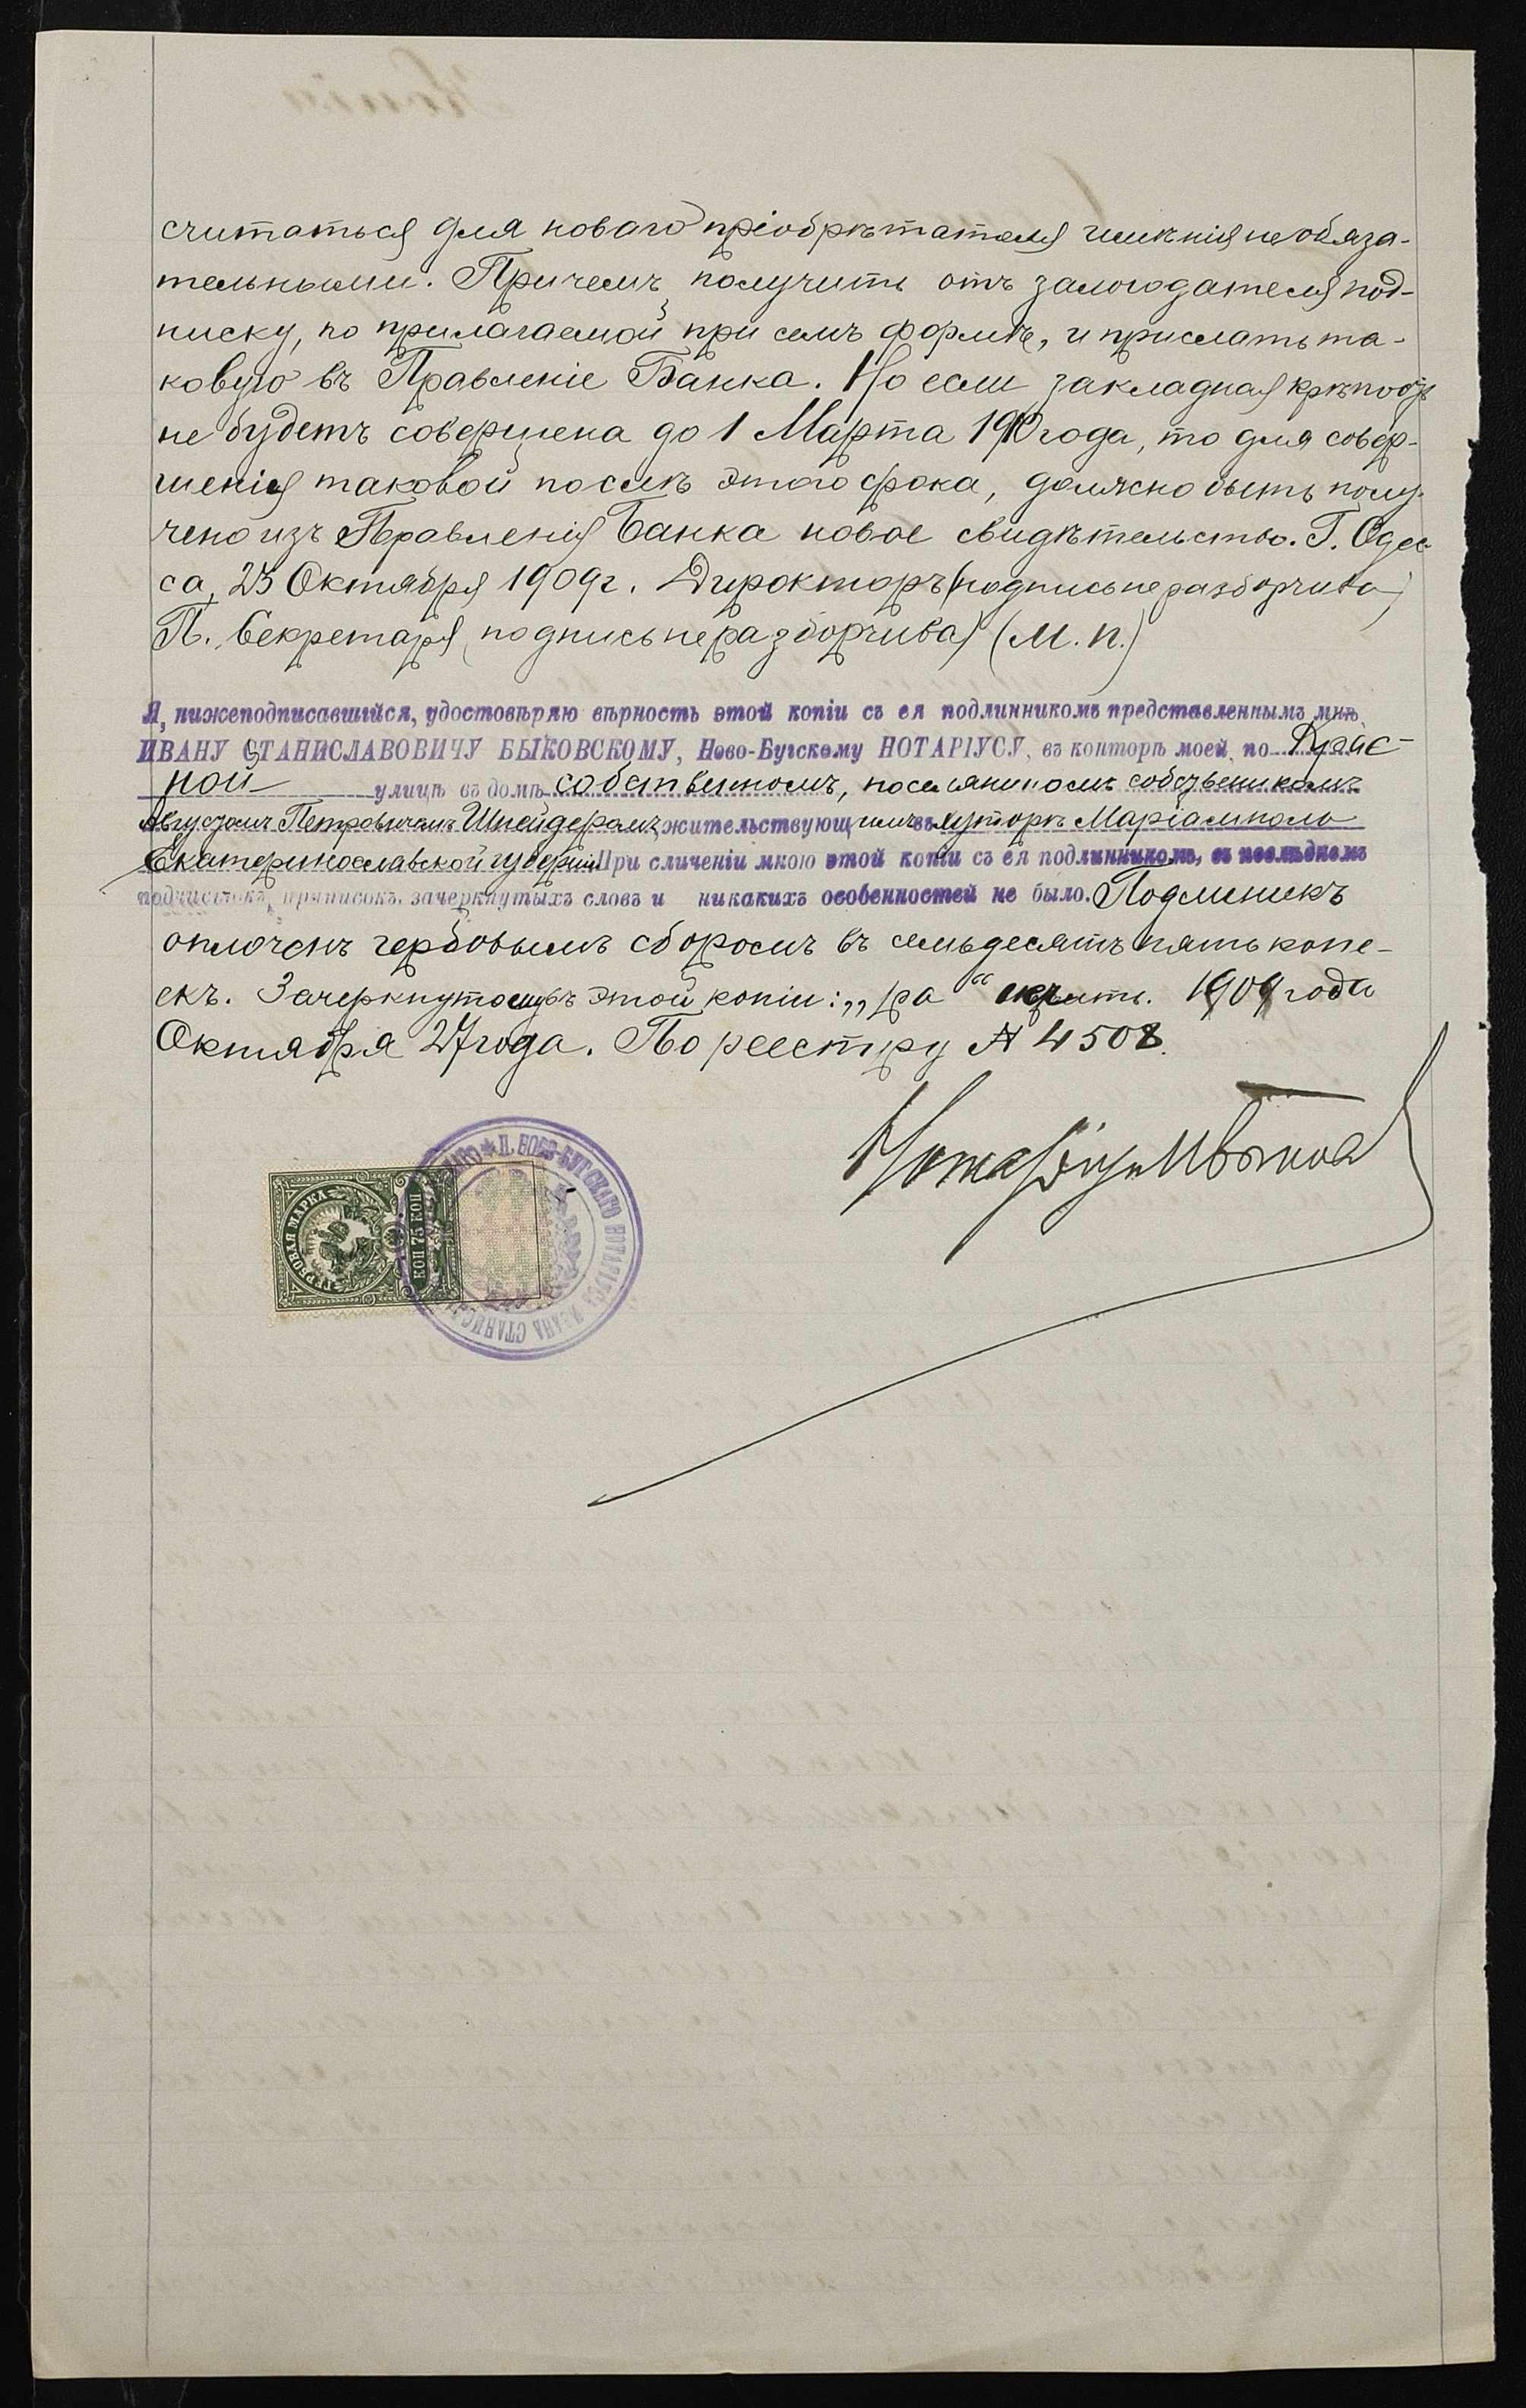 считаться для новаго пріобрѣтателя имѣнія необяза-
тельными. Причемъ получить отъ залогодателя под-
писку, по прилагаемой при семъ формѣ, и прислать та-
ковую въ Правленіе Банка. Но если закладная крѣпость
не будетъ совершена до 1 Марта 1910 года, то для совер-
шенія таковой послѣ этого срока, должно быть полу-
чено изъ Правленія Банка новое свидѣтельство. Г. Одес-
са, 23 Октября 1909 г. Директоръ (подпись неразборчива)
П. Секретаря (подпись неразборчива) (М. П.)
Я, нижеподписавшійся, удостовѣряю вѣрность этой копіи съ ея подлинникомъ представленнымъ мнѣ
ИВАНУ СТАНИСЛАВОВИЧУ БЫКОВСКОМУ, Ново-Бугскому НОТАРІУСУ, въ конторѣ моей, по
ной улицѣ въ домѣ собственномъ, поселяниномъ собственникомъ
Августомъ Петровичемъ Шнейдеромъ, жительствующимъ въ хуторѣ Маріамполь
Екатеринославской губерніи При сличеніи мною этой копіи съ ея подлинникомъ, въ послѣднемъ
подчистокъ, приписокъ, зачеркнутыхъ словъ и никакихъ особенностей не было. Подлинникъ
оплоченъ гербовымъ сборомъ въ семьдесятъ пять копе-
екъ. Зачеркнутому въ этой копіи: „ра“ не вѣрить. 1909 года
Октября 27 года. По реестру № 4508.
Нотаріусъ
ГЕРБОВАЯ МАРКА
КОП 75 КОП
П. НОВО-БУГСКАГО НОТАРІУСА ИВАНА СТАНИС